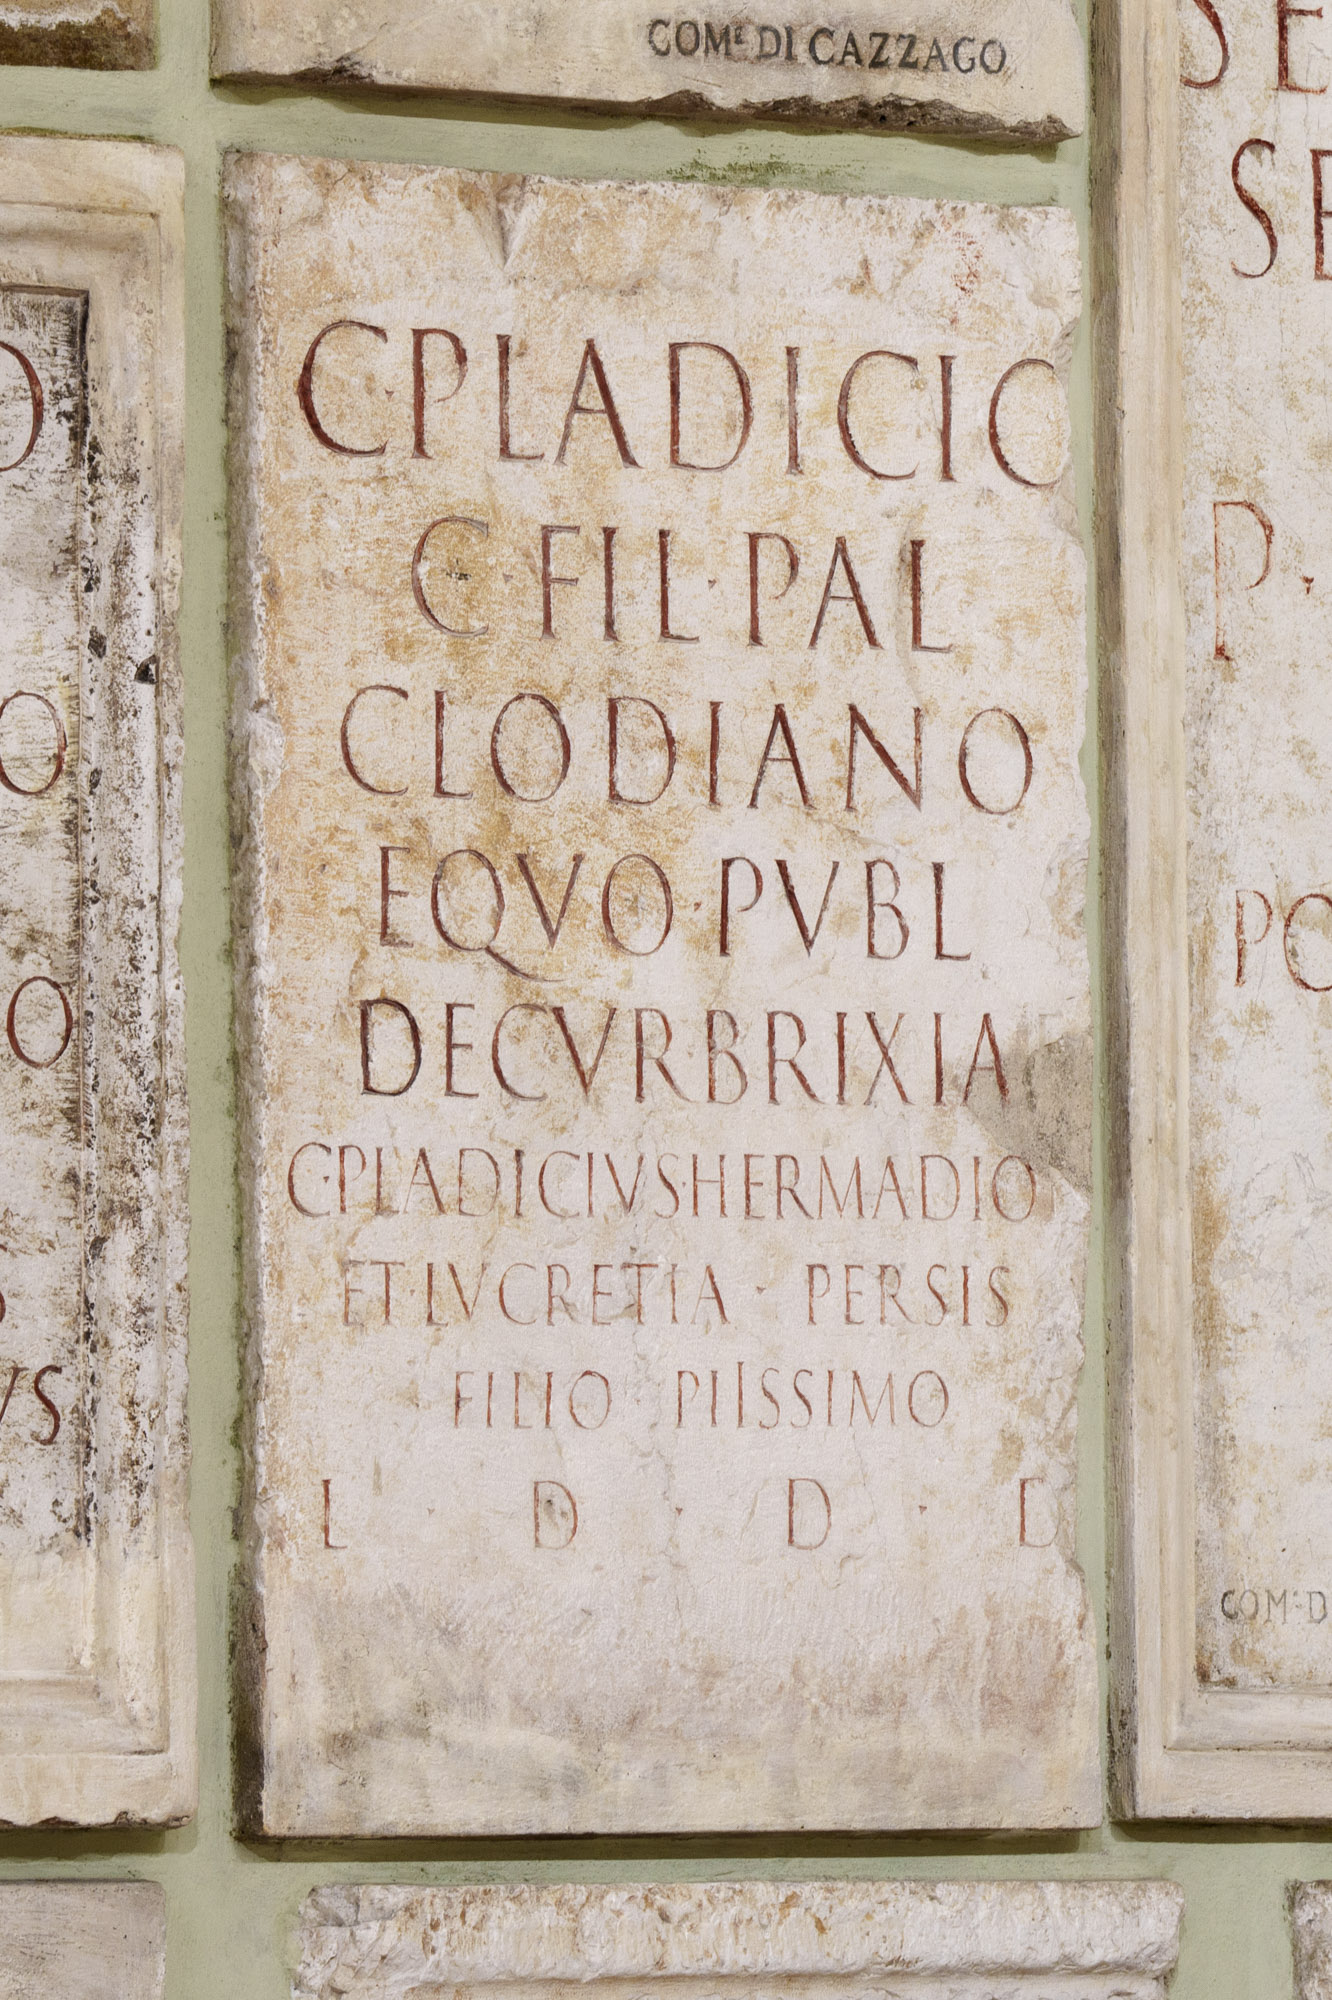 COMᴱ DI CAZZAGO
C·PLADICIO
C·FIL·PAL
CLODIANO
EQVO·PVBL
DECVRBRIXIA
C·PLADICIVS·HERMADIO
ET·LVCRETIA · PERSIS
FILIO PIISSIMO
L · D · D · D
SE
P·
PO
COM·D
O
O
O
VS